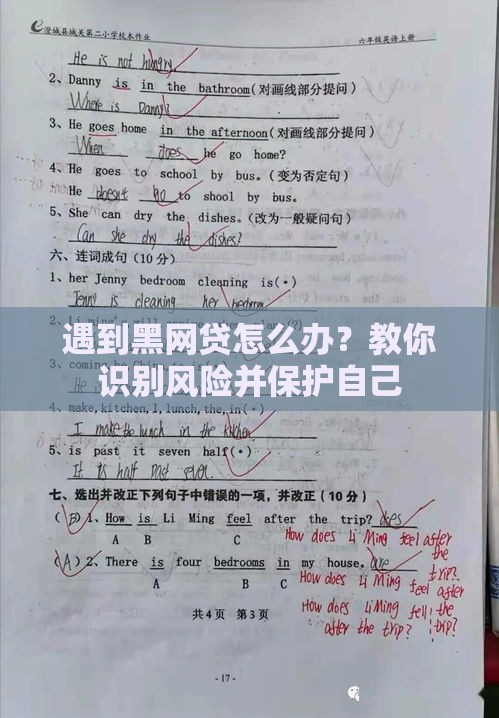 澄城县城关第二小学校本作业 六年级英语上册
He is not hungry.
2、Danny is in the bathroom(对画线部分提问)
Where is Danny?
3、He goes home in the afternoon(对画线部分提问)
When does he go home?
4、He goes to school by bus。(变为否定句)
He doesnt go to shool by bus.
5、She can dry the dishes。(改为一般疑问句)
Can she dry the dishes?
六、连词成句(10分)
1、her Jenny bedroom cleaning is(·)
Jenny is cleaning her bedroom.
遇到黑网贷怎么办？教你
识别风险并保护自己
4、make,kitchen,I,lunch,the,in(·)
I make the lunch in the kitchen.
5、is past it seven half(·)
It is half past seven.
七、选出并改正下列句子中错误的一项，并改正(10分)
(B)1、How is Li Ming feel after the trip? does
A B C
How does Li Ming feel after the trip?
(A)2、There is four bedrooms in my house。are
A B C
How does Li Ming feel after the trip?
How does Li Ming fell after the trip?
共4页 第3页
-17-